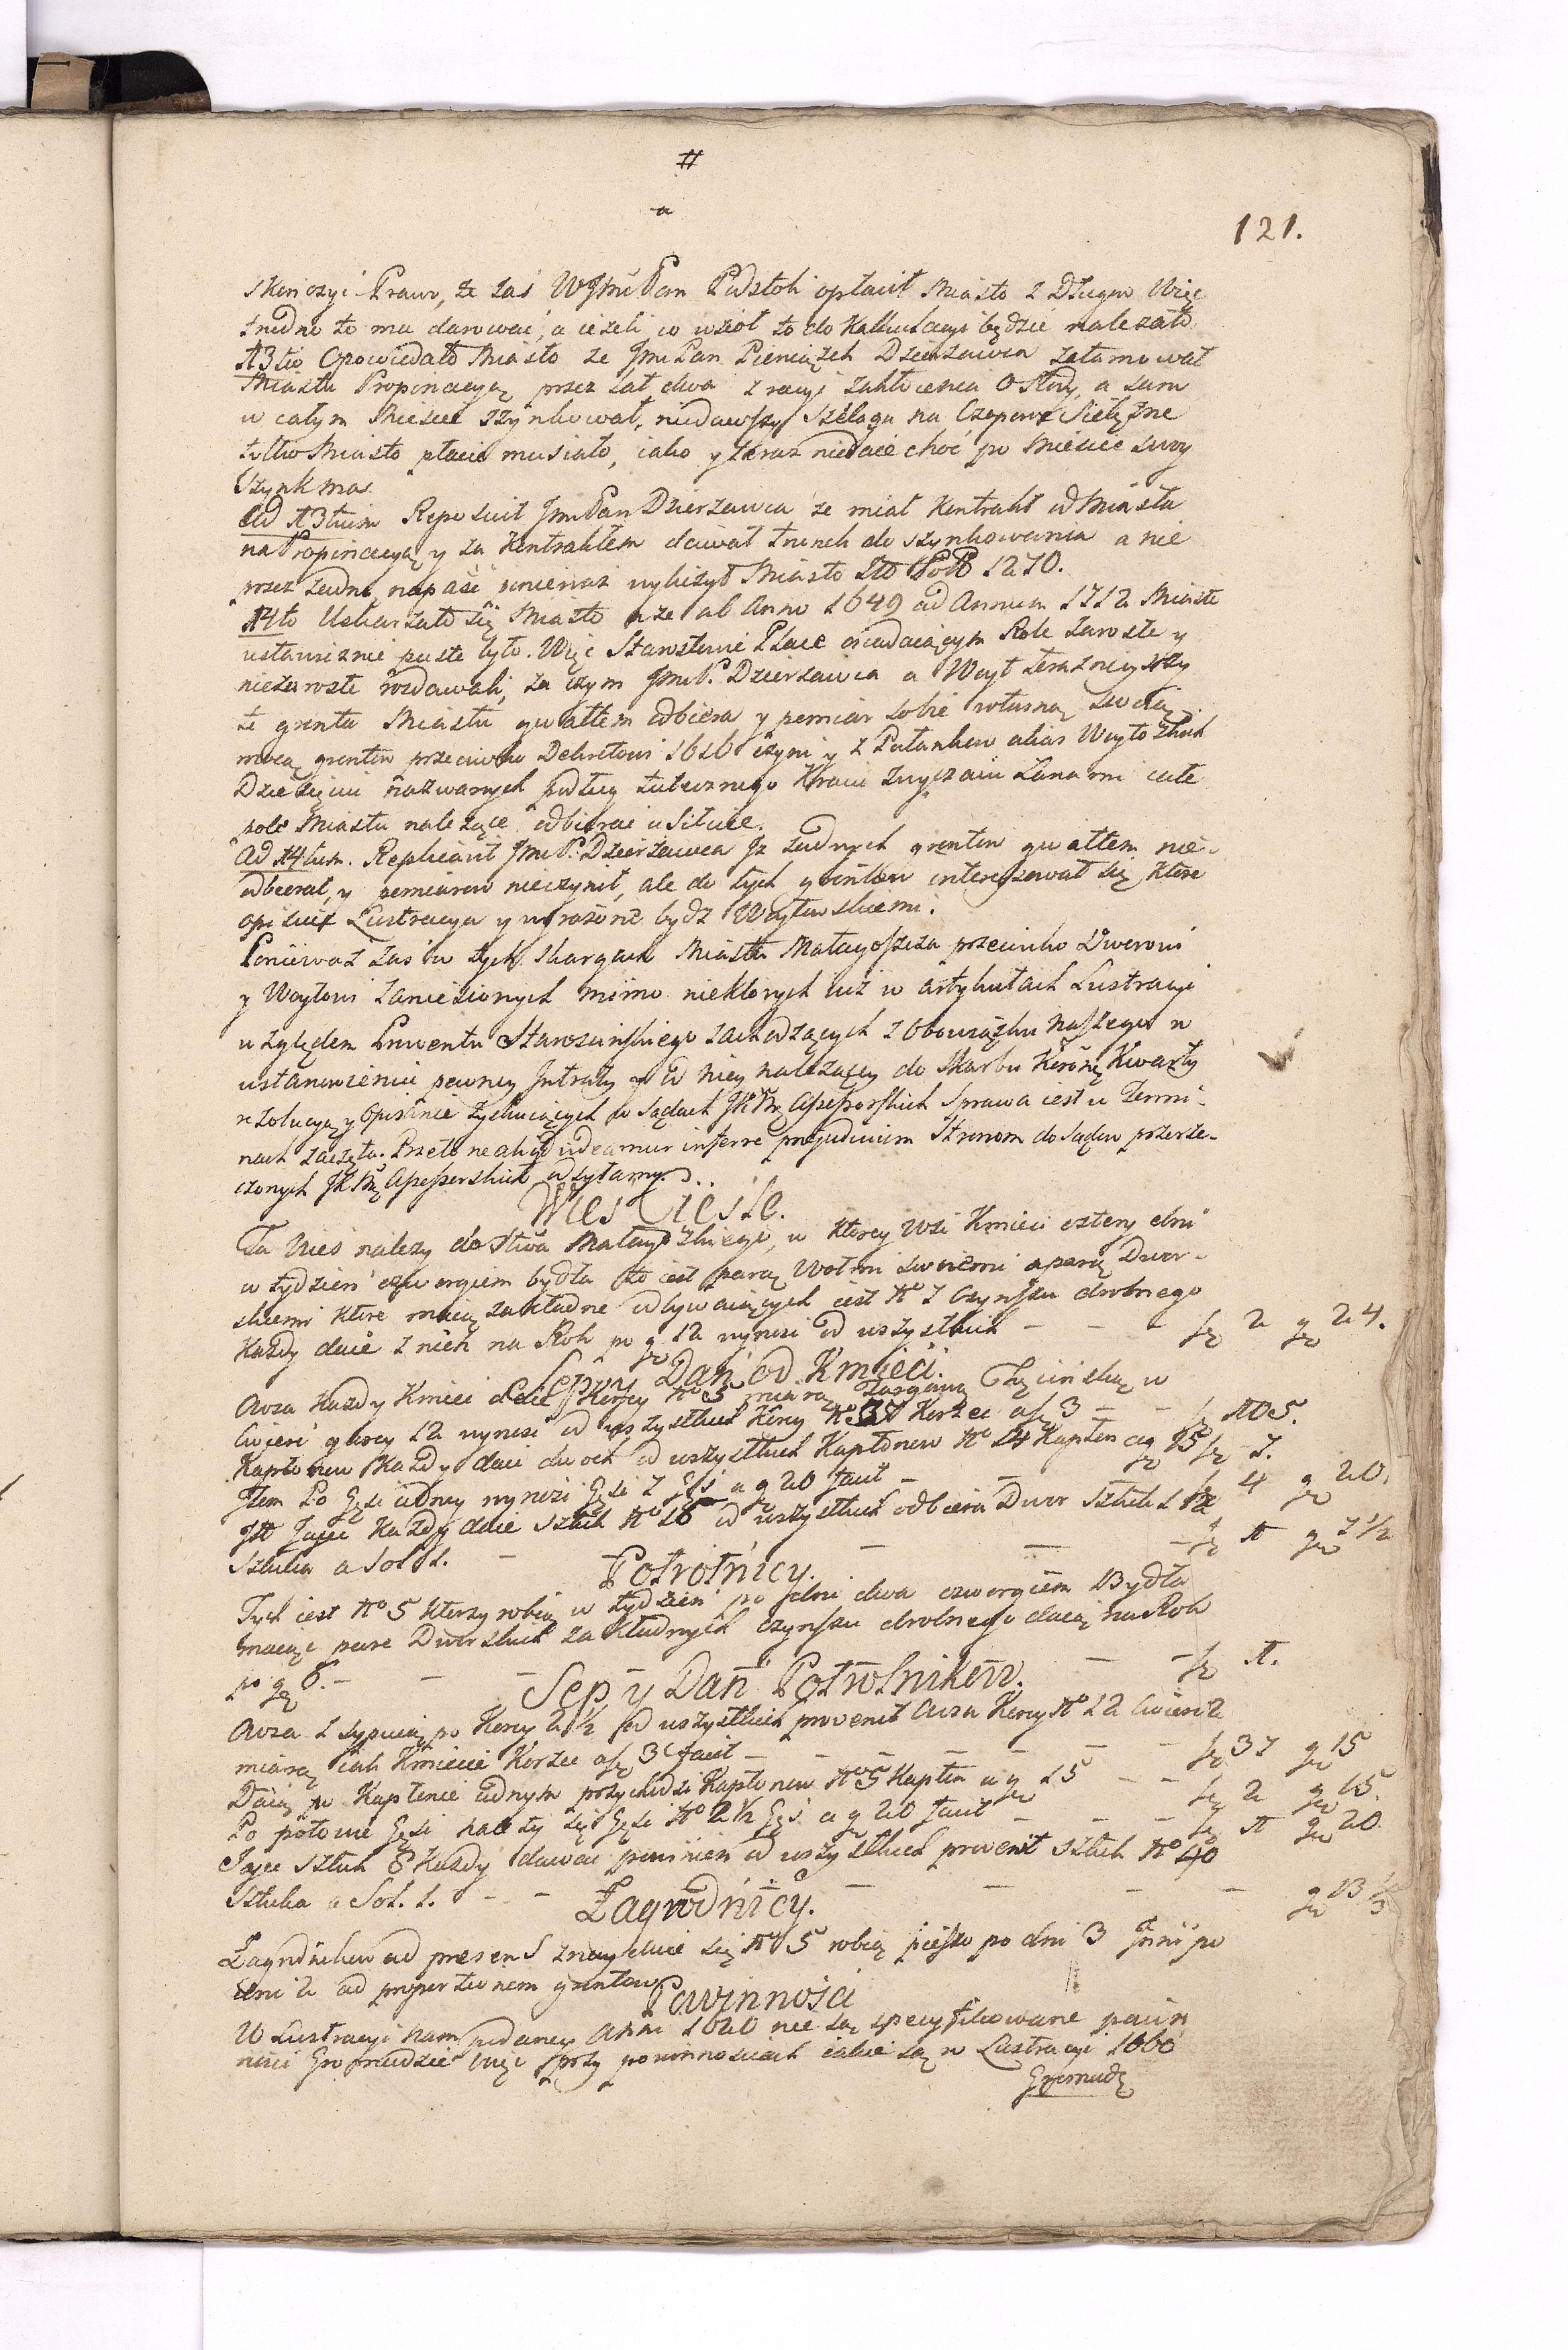 #
a
121.
skończyć Prawo, że zaś WJmć Pan Podstoli opłacił Miasto z Długow Więc
trudno to mu darować, a ieżeli co wziół to do Kalkulacyi będzie należało
13tio Opowiedało Miasto że Jmć Pan Pieniążek Dzierżawca zatamował
Miastu Propinacyą przez lat dwa z racyi zakłócenia O Słody, a sam
w całym Mieście szynkował, niedawszy Szeląga na Czopowe Sielężne
tylko Miasto płacić musiało, iako y teraz niedaie choć po Mieście swoy
Szynk ma.
Ad 13tium Reposuit Jmć Pan Dzierzawca że miał Kontrakt od Miasta
na Propinacyą y za Kontraktem dawał trunek do szynkowania a nie
przez żadną napaść ponieważ wyliczył Miastu
14to Uskarżało się Miasto iże ab Anno 1649 ad Annum 1712 Miasto
ustawicznie puste było. Więc Starostowie Place osiadaiącym Role zarosłe y
niezarosłe rozdawali, za czym Jmć P. Dzierzawca a Woyt teraznieyszy
te grunta Miastu gwałtem odbiera y pomiar sobie własną swoią
mocą gruntow przeciwko Dekretowi 1616 czyni y z Półankow alias Woytowskich
Dziesięciu nazwanych podług tutecznego Kraiu zwyczaiu Łanami całe
pole Miastu należące odbierać usiłuie.
Ad 14tum. Replicavit Jmć P. Dzierzawca Iż żadnych gruntow gwałtem nie-
odbierał, y pomiarow nieczynił, ale do tych gruntow interesował się ktore
opisuie Lustracya y wyrażone bydz Woytowskiemi.
Ponieważ zaś w tych skargach Miasta Małagoszcza przeciwko Dworowi
y Woytowi zaniesionych mimo niektorych iuż w artykułach Lustracyi
względem Prowentu Starościńskiego zachodzących z Obowiązku naszego w
ustanowieniu pewney Intraty y od niey należącey do Skarbu Koronę Kwarty
rezolucyą y Opisanie tychniących w Sądach JKMć Assessorskich Sprawa iest w Termi-
nach zaczęta. Przeto ne aliquid videamur inferre praejudicium Stronom do Sądow przerze-
czonych JKMć Assessorskich odsyłamy.
Wieś Cieśle.
Ta Wieś należy do Stwa Małagoskiego, w ktorey Wsi Kmieci cztery dni
w tydzień czworgiem bydła to iest parą Wołmi swoiemi a parą Dwor-
skiemi ktore maią zakładne odbywaiących iest No 7 Czynszu drobnego
Każdy daie z nich na Rok po gr 12 wynosi od wszystkich - - - fl 2 gr 24.
Sep y Dań od Kmieci.
Owsa Każdy Kmieć daie Korcy No 5 miarą Targową Chęcińską w
Cwierć garcy 12 wynosi od wszystkich Korcy No 35 Korzec a fl 3 - - fl 105.
Kapłonow Każdy daie dwoch od wszystkich Kapłonow No 14 Kapłon a gr 15 fl 7.
Item Po Gęsi iedney wynosi Gęsi 7 Gęś a gr 20 facit - - fl 4 gr 20.
Itt Jaiec Każdy daie sztuk No 16 od wszystkich odbiera Dwor Sztuk 112
Sztuka a Sol 1. - - - fl - gr 7 1/2
Połrolnicy.
Tych iest No 5 Ktorzy robią w tydzień po dni dwa czworgiem Bydła
maiąc parę Dworskich zakładnych czynszu drobnego daią na Rok
po gr 6. - - - - - fl 1.
Sep y Dań Połrolnikow.
Owsa 1 sypuią po Korcy 2 1/2 od wszystkich provenit Owsa Korcy No 12 Cwierci 2
miarą iak Kmiecie Korzec a fl 3 facit - - - - fl 37 gr 15
Daią po Kapłonie iednym przychodzi Kapłonow No 5 Kapłon a gr 15 - - fl 2 gr 15.
Po połowie Gęsi należy się Gęsi No 2 1/2 Gęś a gr 20 facit - - - fl 1 gr 20.
Jaiec sztuk 8 Każdy dawać powinien od wszystkich provenit sztuk No 40
Sztuka a Sol. 1. - - - - - gr 13 1/3
Zagrodnicy.
Zagrodnikow ad presens znayduie się No 5 robią pieszo po dni 3 Inni po
dni 2 ad proportionem gruntow
Powinności
W Lustracyi nam podaney Anni 1620 nie są specyfikowane powin
ności Gromadzie więc przy powinnościach iakie są w Lustracyi 1660
Gromadę